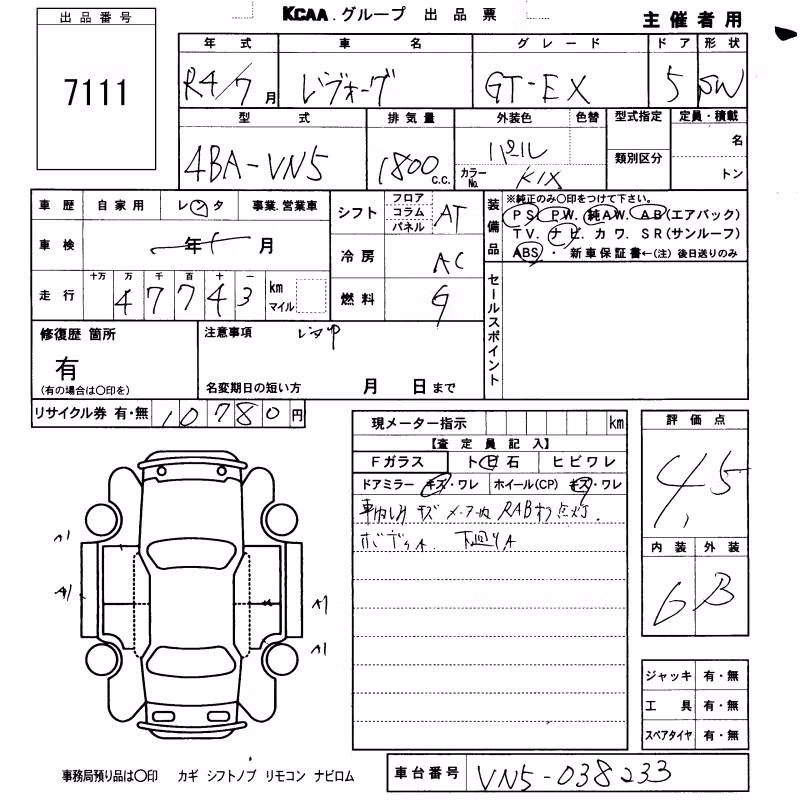 出品番号
7111
KCAA.グループ 出品票
主催者用
年式 車名 グレード ドア 形状
R4/7月 レヴォーグ GT-EX 5 SW
型式 排気量 外装色 色替 型式指定 定員・積載
4BA-VN5 1800 C.C. パール カラーNo. K1X 類別区分 名 トン
車歴 自家用 レンタ 事業.営業車
車検 年 月
走行 十万 万 千 百 十 一
47743 km マイル
シフト フロア コラム パネル AT
冷房 AC
燃料 G
装備品 ※純正のみ〇印をつけて下さい。
PS. PW. 純AW. AB(エアバック)
TV. ナビ. カワ. SR(サンルーフ)
ABS・ 新車保証書←(注) 後日送りのみ
セールスポイント
修復歴 箇所
有
(有の場合は〇印を)
注意事項
名変期日の短い方 月 日まで
リサイクル券 有・無 10780円
現メーター指示 km
【査定員記入】
Fガラス トビ石 ヒビワレ
ドアミラー キズ・ワレ ホイール(CP) キズ・ワレ
RAB 点灯.
下回りA
評価点
4,5
内装 外装
6 B
A1
A1
A1
A1
ジャッキ 有・無
工具 有・無
スペアタイヤ 有・無
事務局預り品は〇印 カギ シフトノブ リモコン ナビロム
車台番号 VN5-038233